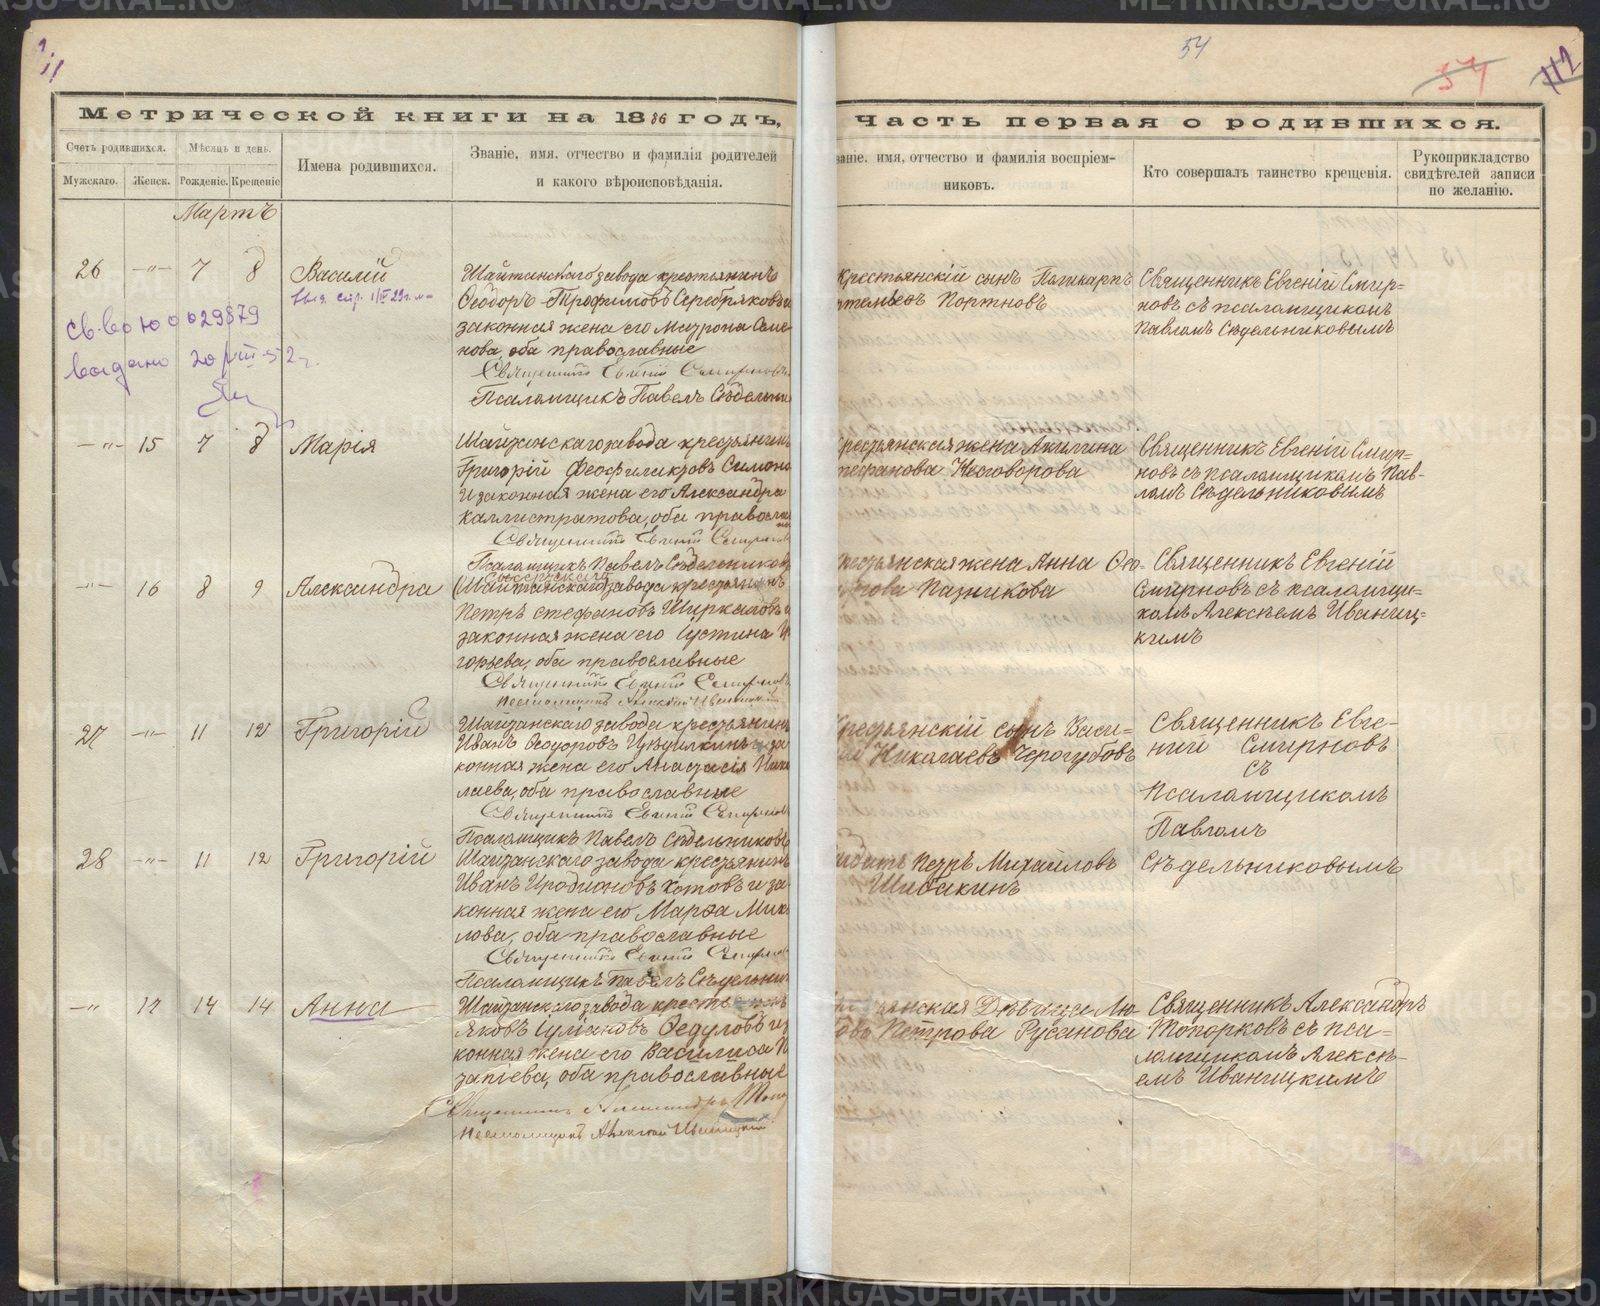 54
57
112
11
Метрической книги на 1886 годъ,
часть первая о родившихся.
Счетъ родившихся.
Мѣсяцъ и день.
Имена родившихся.
Званіе, имя, отчество и фамилія родителей
и какого вѣроисповѣданія.
Мужскаго.
Женск.
Рожденіе.
Крещеніе
званіе, имя, отчество и фамилія воспріем-
никовъ.
Кто совершалъ таинство крещенія.
Рукоприкладство
свидѣтелей записи
по желанію.
Мартъ
26 -"- 7 8
Василій
св-во Ю 0029879
выдано 20/VIII-52 г.
Шайтанскаго завода крестьянинъ
Ѳеодоръ Трофимовъ Серебряковъ и
законная жена его Матрона Семе
нова, оба православные
Священникъ Евгеній Смирновъ
Псаломщикъ Павелъ Сѣдельни
Крестьянскій сынъ Поликарпъ
ртемьевъ Портновъ
Священникъ Евгеній Смир=
новъ съ псаломщикомъ
Павломъ Сѣдельниковымъ
-"- 15 7 8
Марія
Шайтанскаго завода крестьянинъ
Григорій Феофилактовъ Симоно
и законная жена его Александра
Каллистратова, оба правосла
Священникъ Евгеній Смирнов
Псаломщикъ Павелъ Сѣдельников
крестьянская жена Акилина
тефанова Неговорова
Священникъ Евгеній Смир=
новъ съ псаломщикомъ Пав-
ломъ Сѣдельниковымъ
-"- 16 8 9
Александра
Шайтанскаго завода крестьянинъ
Петръ Стефановъ Ширкаловъ и
законная жена его Іустина И
горьева, оба православные
Священникъ Евгеній Смирновъ
Псаломщикъ Алексѣй Иваницкій
крестьянская жена Анна Ѳео-
Пазникова
Священникъ Евгеній
Смирновъ съ псаломщи=
комъ Алексѣемъ Иваниц=
кимъ
27 -"- 11 12
Григорій
Шайтанскаго завода крестьянинъ
Иванъ Ѳеодоровъ и за
конная жена его Анастасія Нико
лаева, оба православные
Священникъ Евгеній Смирнов
Псаломщикъ Павелъ Сѣдельниковъ
Крестьянскій сынъ Васи=
лій Николаевъ Черогубовъ
Священникъ Евге-
ній Смирновъ
съ
Псаломщикомъ
Павломъ
Сѣдельниковымъ
28 -"- 11 12
Григорій
Шайтанскаго завода крестьянинъ
Иванъ Иродіоновъ Котовъ и за
конная жена его Марѳа Миха
лова, оба православные
Священникъ Евгеній Смирнов
Псаломщикъ Павелъ Сѣдельни
Петръ Михайловъ
Шибакинъ
-"- 17 14 14
Анна
Шайтанскаго завода крестьянинъ
Яковъ Ѳедуловъ и з
конная жена его Василиса П
оба православные
Священникъ Александръ Топо
Псаломщикъ Алексѣй Иваницкій
крестьянская Дѣвица Лю
бовь Петрова Русанова
Священникъ Александръ
Топорковъ съ пса=
ломщикомъ Алексѣ-
емъ Иваницкимъ
METRIKI.GASU-URAL.RU